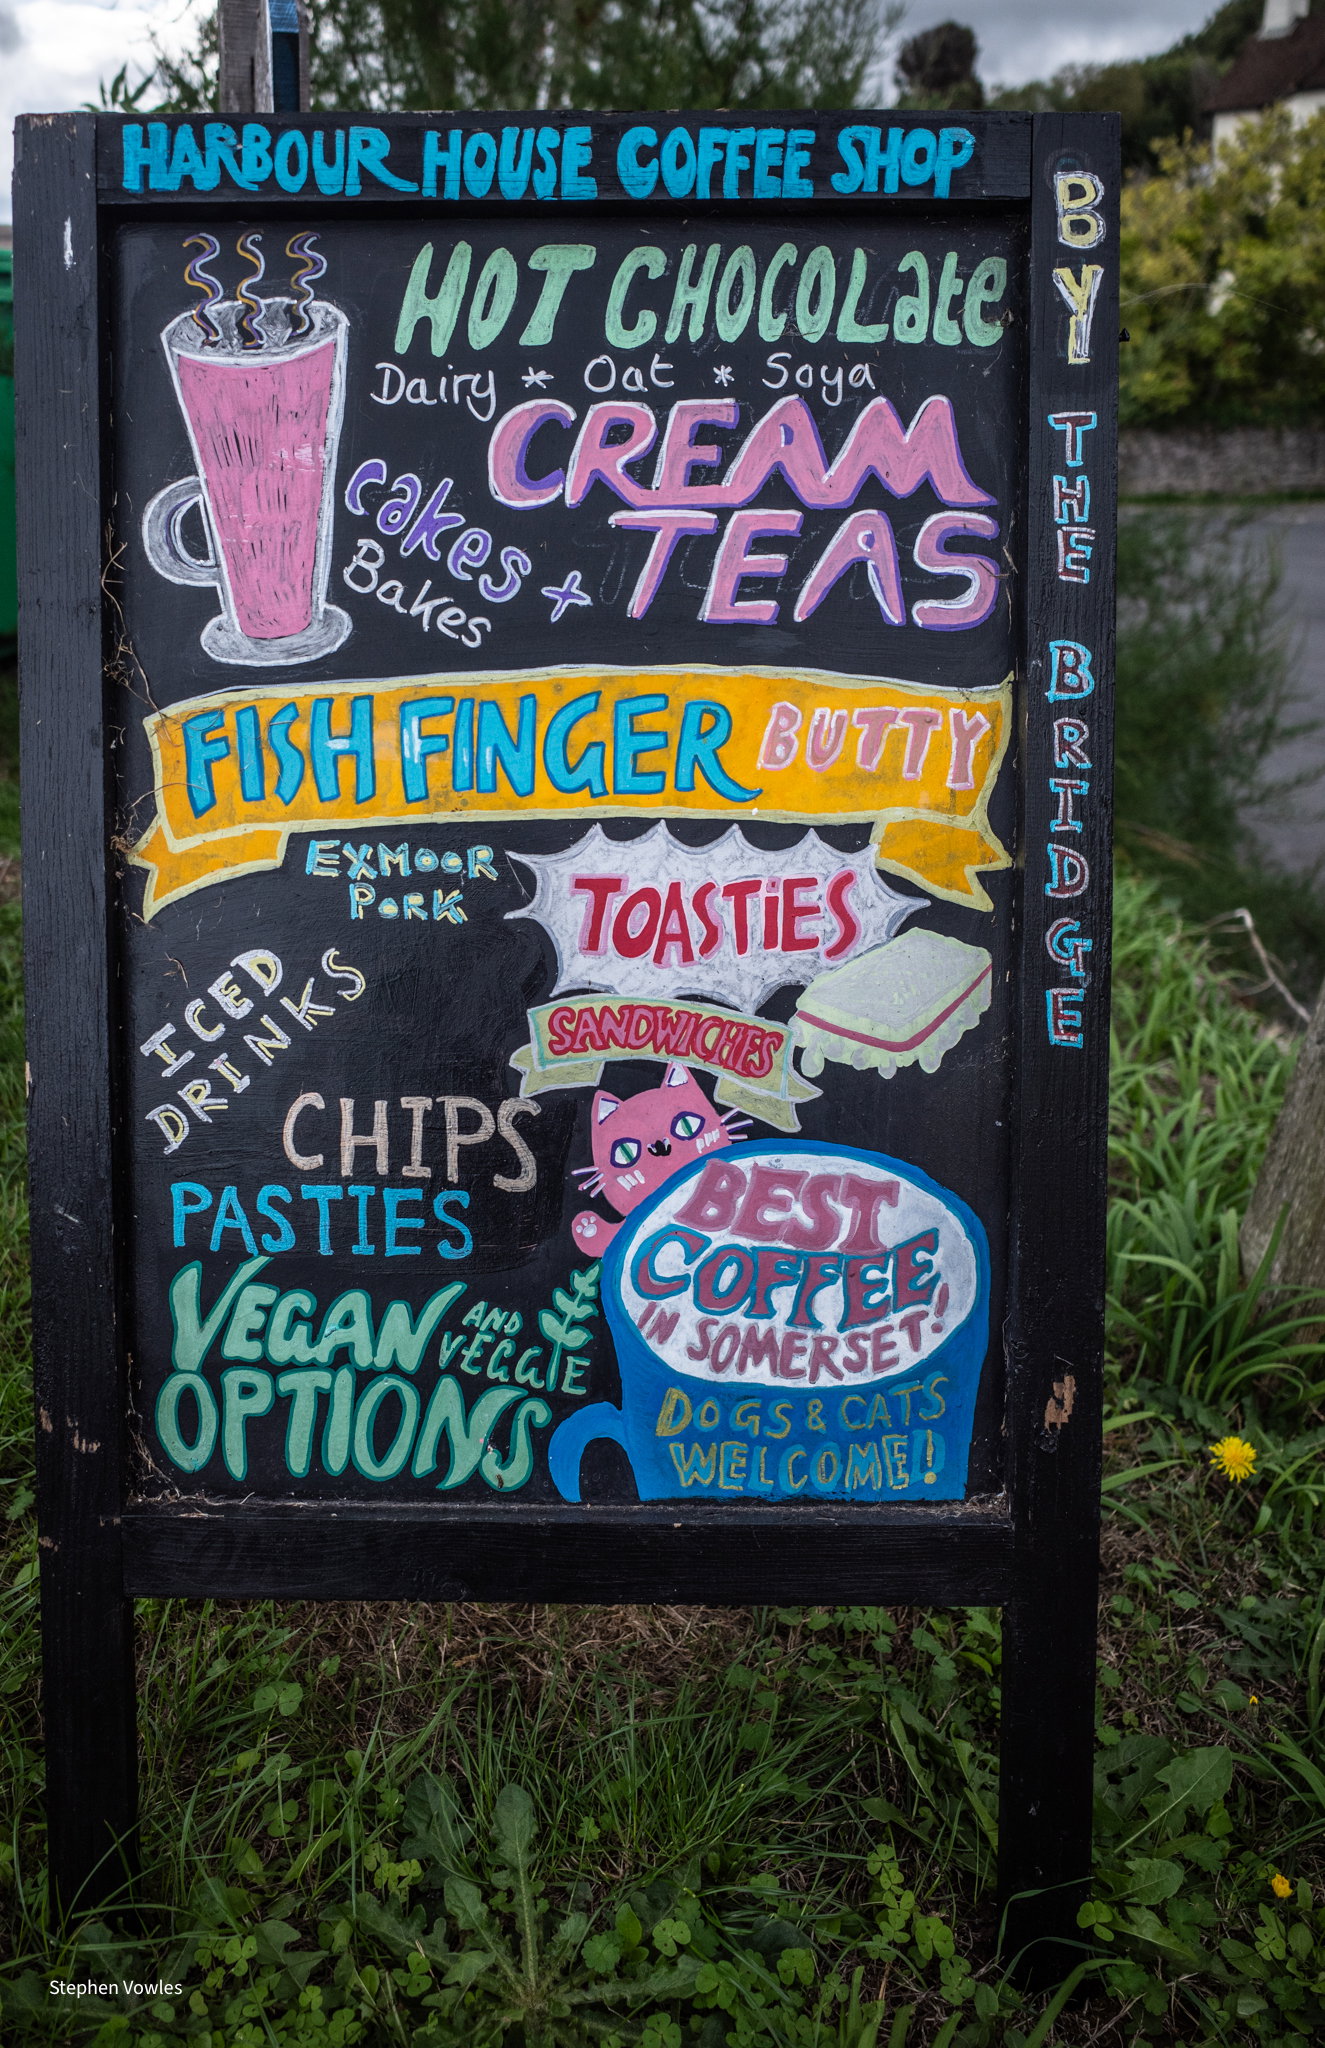 HARBOUR HOUSE COFFEE SHOP
HOT CHOCOLate
Dairy * Oat * Soya
CREAM
TEAS
cakes +
Bakes
FISH FINGER BUTTY
EXMOOR
PORK
TOASTiES
SANDWICHES
ICED
DRINKS
CHIPS
PASTIES
VEGAN
AND
VEGGIE
OPTIONS
BEST
COFFEE
IN SOMERSET!
DOGS & CATS
WELCOME!
BY THE BRIDGE
Stephen Vowles